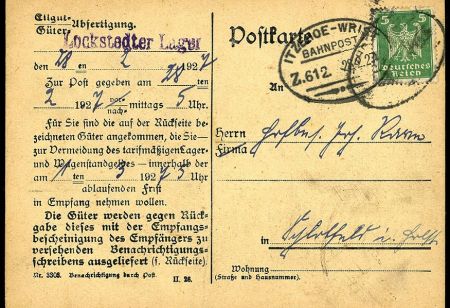 Eilgut-
Güter- Abfertigung.
Lockstedter Lager
den 28 ten 2 1927
Zur Post gegeben am 28 ten
2 1927 vor- nach- mittags 5 Uhr.
Für Sie sind die auf der Rückseite be-
zeichneten Güter angekommen, die Sie
zur Vermeidung des tarifmäßigen Lager-
und Wagenstandgeldes — innerhalb der
am 1 ten 3 1927 5 Uhr
ablaufenden Frist
in Empfang nehmen wollen.
Die Güter werden gegen Rück-
gabe dieses mit der Empfangs-
bescheinigung des Empfängers zu
versehenden Benachrichtigungs-
schreibens ausgeliefert (s. Rückseite).
Nr. 3308. Benachrichtigung durch Post. II. 26.
Postkarte
ITZEHOE-WRIST
BAHNPOST
Z.612
5 5
Deutsches
Reich
An
Herrn
Firma
in Schlotfeld i. Holst
Wohnung
(Straße und Hausnummer).